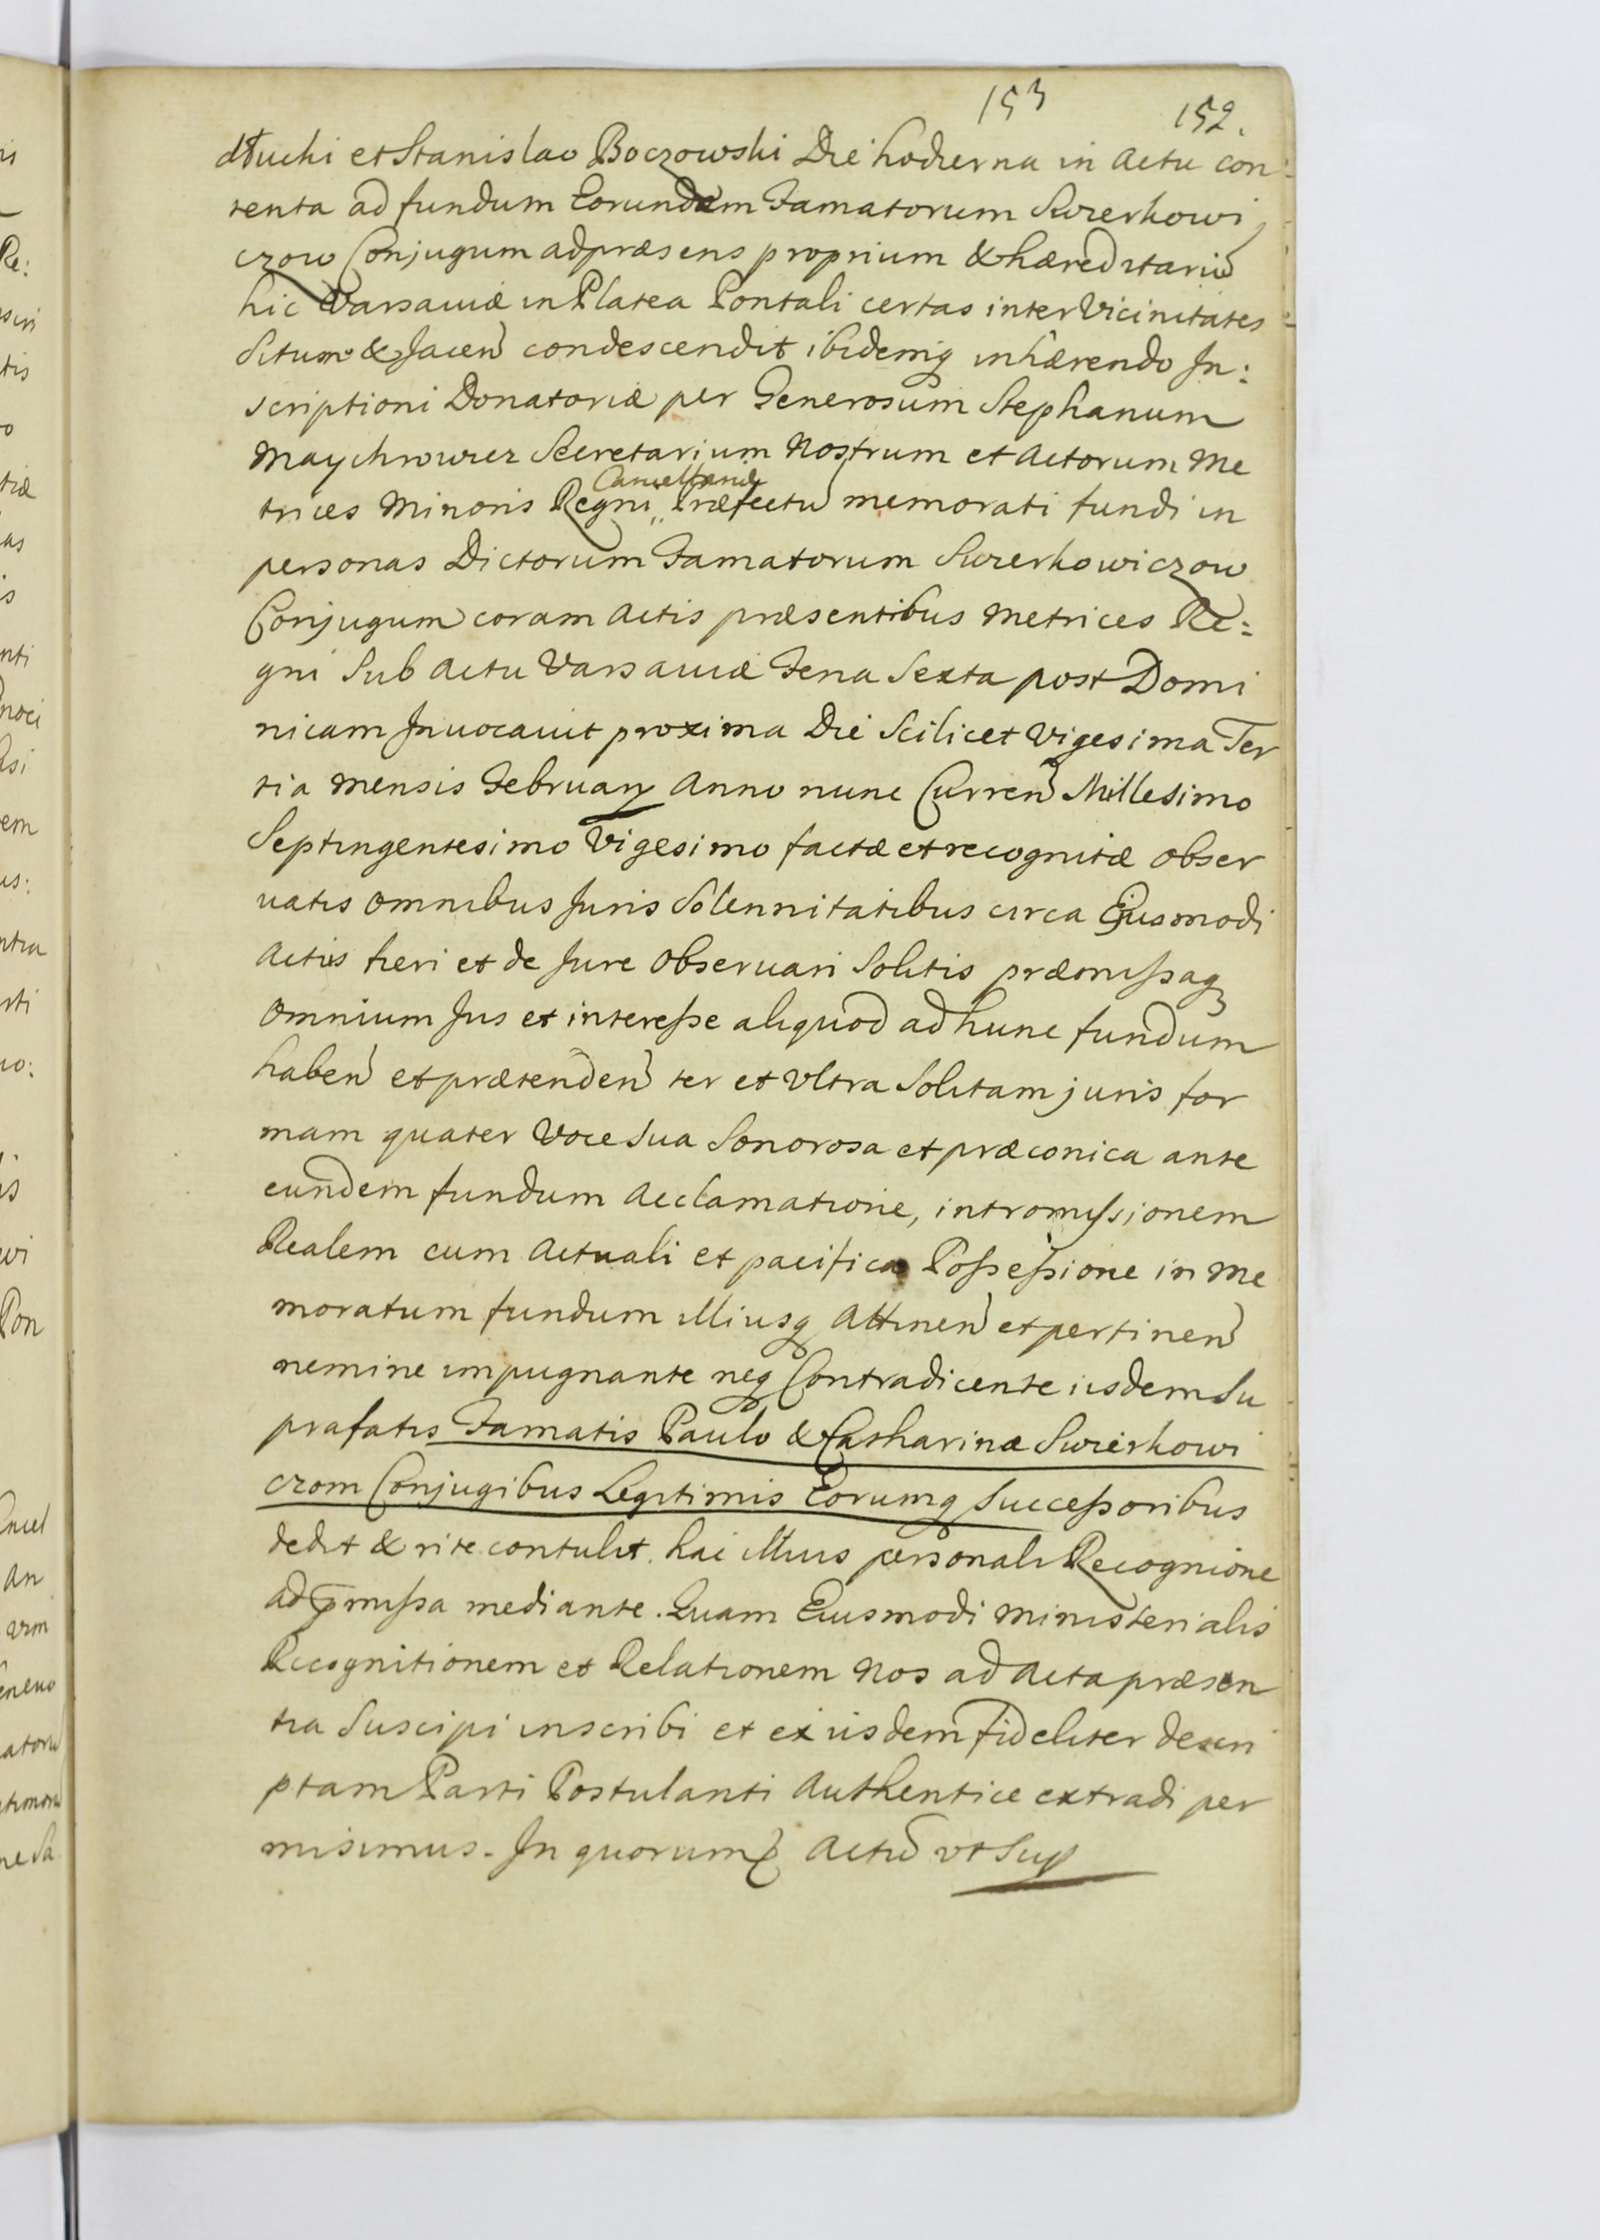 153
152.
dłuchi et Stanislao Boczowski Die hodierna in Actu con:
tenta ad fundum Eorundem Famatorum Swierkowi
czow Conjugum ad præsens proprium & hæreditariu
hic Varsaviæ in Platea Pontali certas inter Vicinitates
Situm & Jacen condescendit ibidemq inhærendo In:
scriptioni Donatoriæ per Generosum Stephanum
Secretarium Nostrum et Actorum Me
Cancellariæ
trices Minoris Regni Præfectu memorati fundi in
personas Dictorum Famatorum Swierkowiczow
Conjugum coram Actis præsentibus Metrices Re:
gni Sub Actu Varsaviæ Feria Sexta post Domi
nicam Invocavit proxima Die Scilicet Vigesima Ter
tia Mensis February Anno nunc Curren Millesimo
Septingentesimo Vigesimo factæ et recognitæ obser
vatis omnibus Juris Solennitatibus circa Ejusmodi
Actus fieri et de Jure Observari Solitis præmissaq
Omnium Jus et interesse aliquod ad hunc fundum
haben et prætenden ter et Vltra Solitam juris for
mam quater Voce sua Sonorosa et præconica ante
eundem fundum Acclamatione, intromissionem
Realem cum Actuali et pacifica Possessione in Me
moratum fundum illiusq Attinen et pertinen
nemine impugnante neq Contradicente iisdem Su
prafatis Famatis Paulo & Catharinæ Swierkowi
czom Conjugibus Legitimis Eorumq Successoribus
dedit & rite contulit. hac illius personali Recognione
ad pmissa mediante. Quam Eiusmodi Ministerialis
Recognitionem et Relationem Nos ad Acta præsen
tia Suscipi inscribi et ex iisdem fideliter descri
ptam Parti Postulanti Authentice extradi per
misimus. In quorum Actu vt Sup